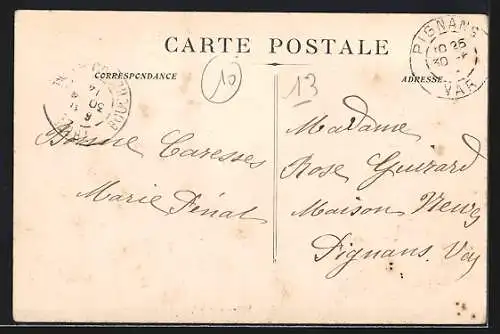 CARTE POSTALE
CORRESPONDANCE
ADRESSE
10
13
PIGNANS
10 26
30 -4
VAR
BOUCH
Bonne Caresses
Marie Pénal
Madame
Rose Guizard
Maison
Pignans. Var